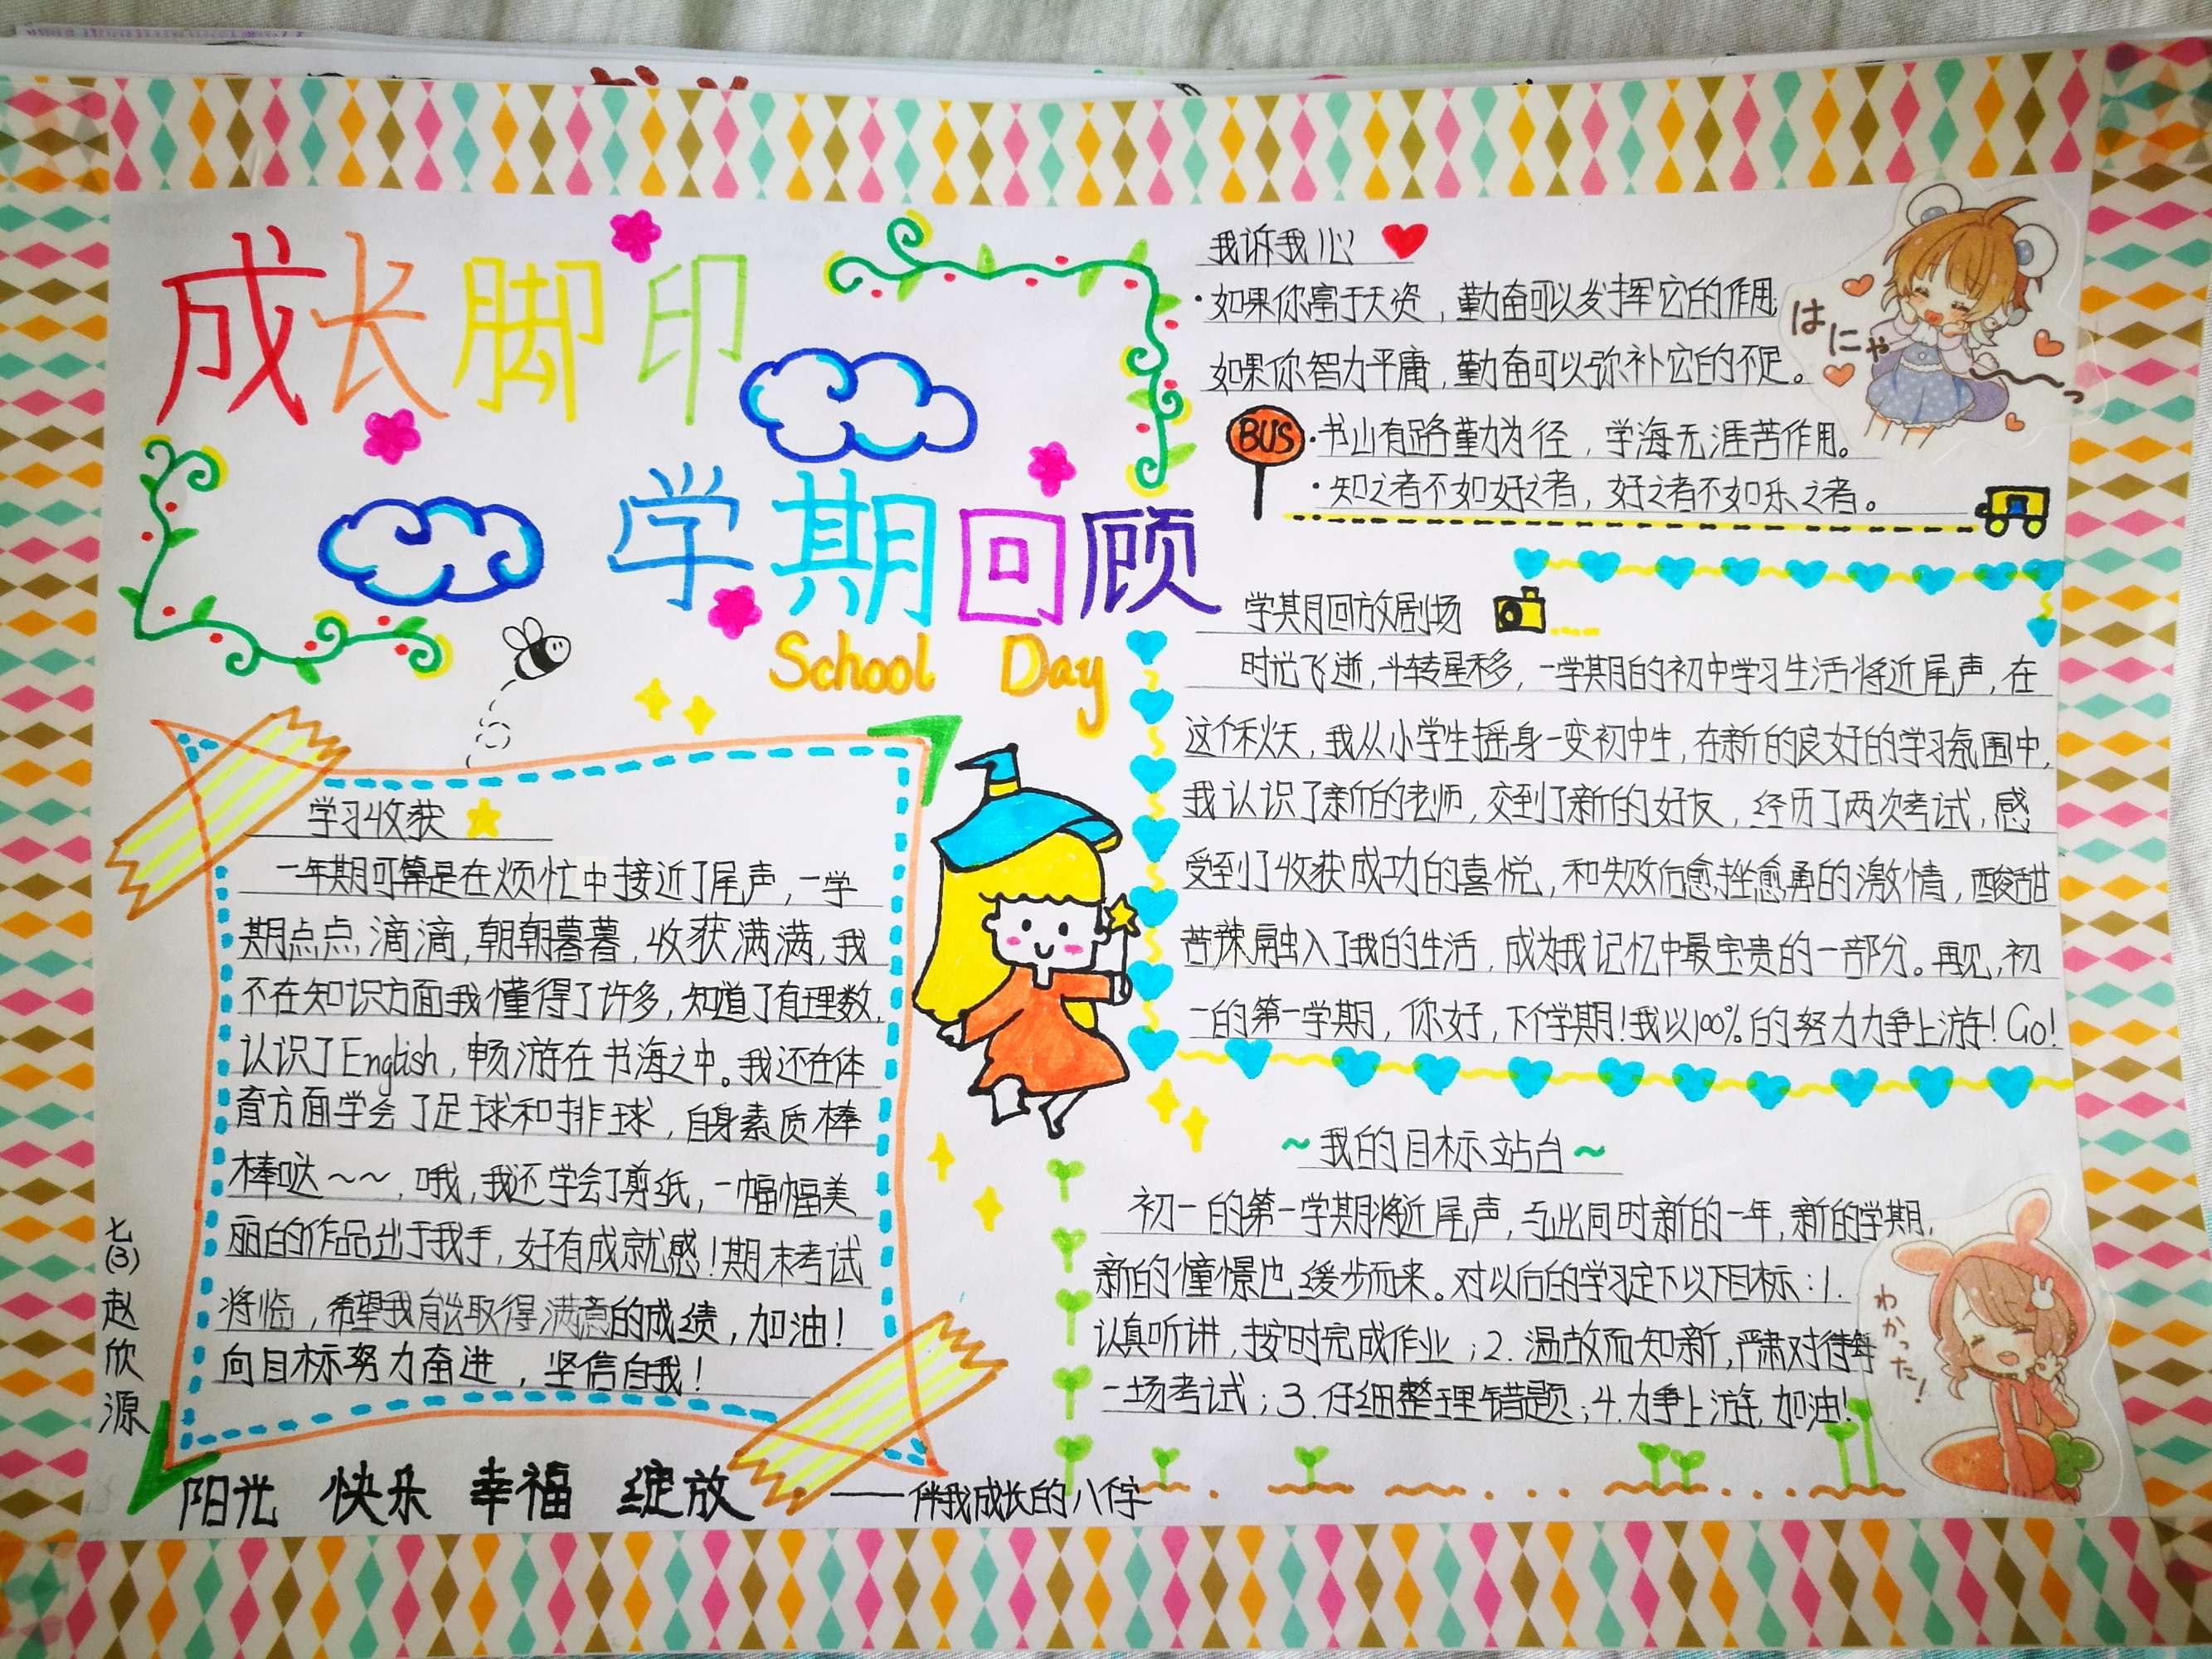 成长脚印
学期回顾
School Day
学习收获
一年期可算是在烦忙中接近了尾声,一学
期点点滴滴,朝朝暮暮,收获满满,我
不在知识方面我懂得了许多,知道了有理数,
认识了English,畅游在书海之中。我还在体
育方面学会了足球和排球,自身素质棒
棒哒~~,哦,我还学会了剪纸,一幅幅美
丽的作品出于我手,好有成就感!期末考试
将临,希望我能取得满意的成绩,加油!
向目标努力奋进,坚信自我!
七(3)赵欣源
阳光 快乐 幸福 绽放 ——伴我成长的八个字
我诉我心
·如果你富于天资,勤奋可以发挥它的作用;
如果你智力平庸,勤奋可以弥补它的不足。
BUS
·书山有路勤为径,学海无涯苦作用。
·知之者不如好之者,好之者不如乐之者。
はにゃ~っ
学期回放剧场
时光飞逝,斗转星移,一学期的初中学习生活将近尾声,在
这个秋天,我从小学生摇身一变初中生,在新的良好的学习氛围中,
我认识了新的老师,交到了新的好友,经历了两次考试,感
受到了收获成功的喜悦,和失败后愈挫愈勇的激情,酸甜
苦辣融入了我的生活,成为我记忆中最宝贵的一部分。再见,初
一的第一学期,你好,下个学期!我以100%的努力力争上游!Go!
~我的目标站台~
初一的第一学期将近尾声,与此同时新的一年,新的学期,
新的憧憬也缓步而来。对以后的学习定下以下目标:1.
认真听讲,按时完成作业;2.温故而知新,严肃对待每
一场考试;3.仔细整理错题;4.力争上游,加油!
わかった!